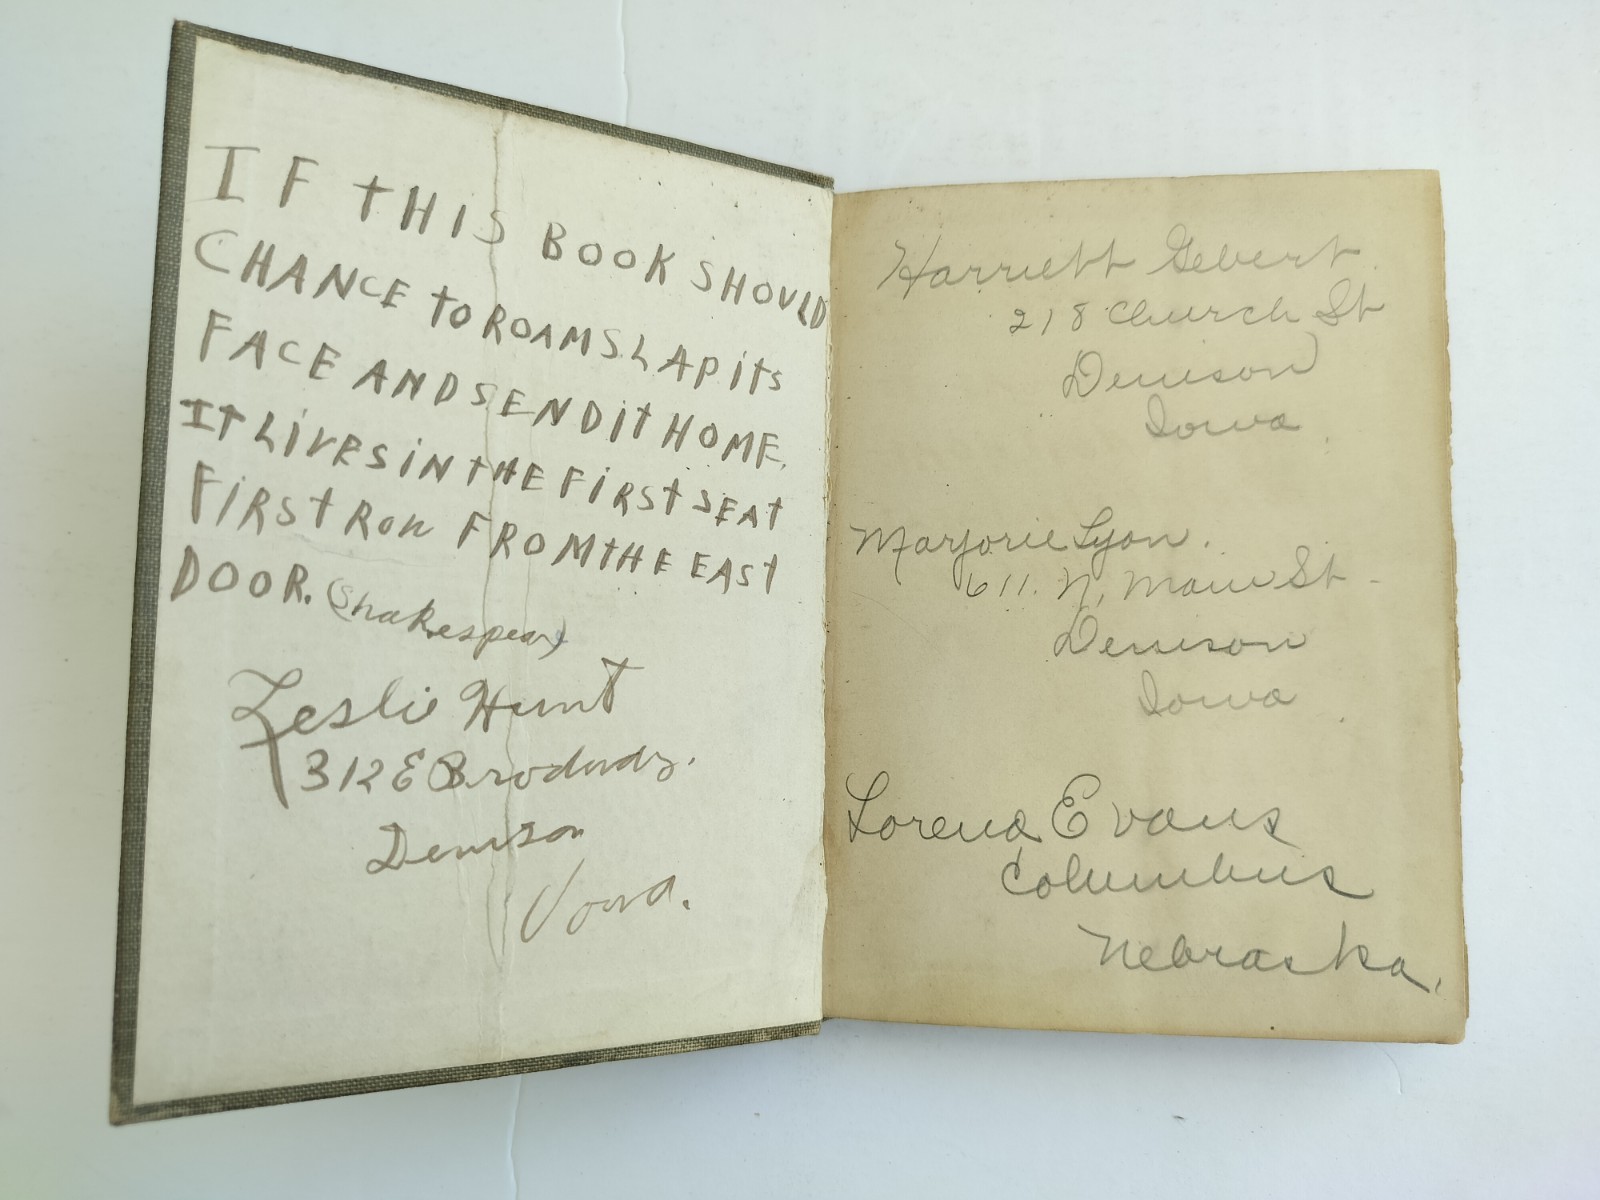 IF tHIS BOOK SHOULD
CHANCE to ROAM SLAP its
FACE AND SEND it HOME.
IT LIVES IN tHE FIRSt SEAt
FIRSt ROW FROM tHE EASt
DOOR. (Shakespear)
Leslie Hunt
312 E Brodwdy.
Denison
Iowa.
Harriett Gebert.
218 Church St
Denison
Iowa.
Marjorie Lyon.
611. N. Main St.
Denison
Iowa.
Lorena Evans
Columbus
Nebraska.